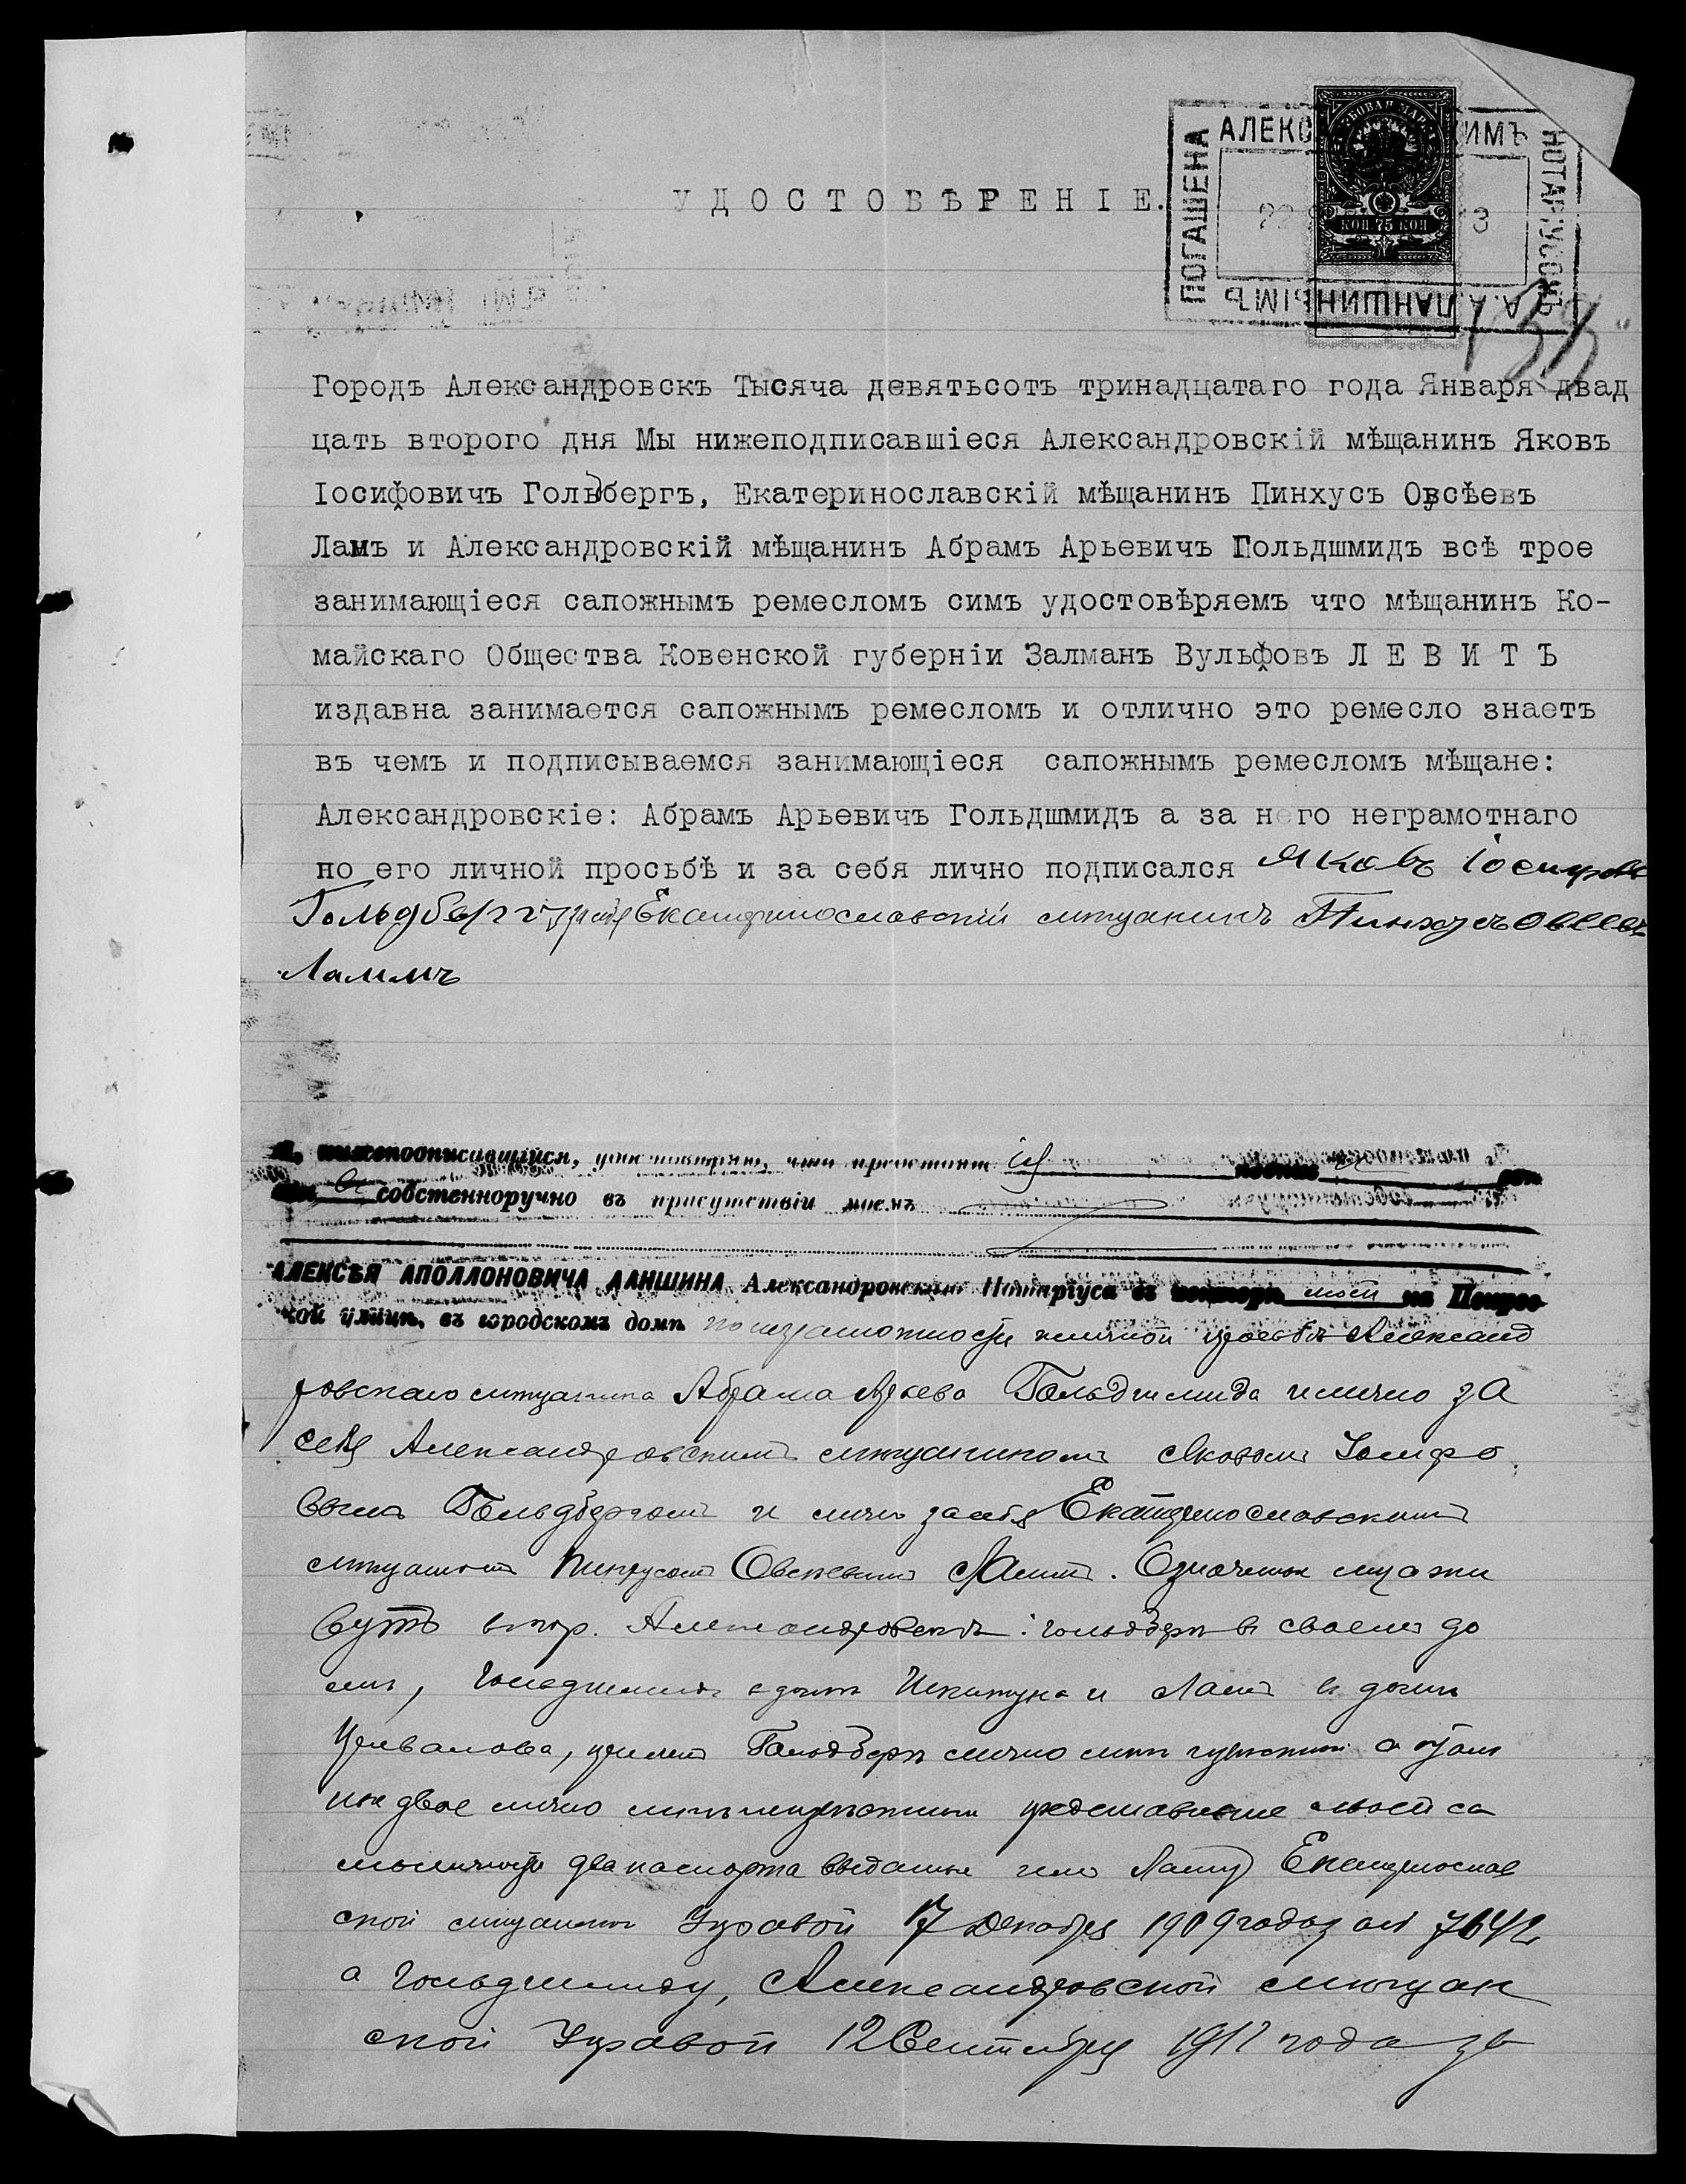 ПОГАШЕНА
НОТАРІУСОМЪ
А.А. ПАНШИНЫМЪ
КОП 75 КОП
УДОСТОВѢРЕНІЕ.
Городъ Александровскъ Тысяча девятьсотъ тринадцатаго года Января двад
цать второго дня Мы нижеподписавшіеся Александровскій мѣщанинъ Яковъ
Іосифовичъ Гольдбергъ, Екатеринославскій мѣщанинъ Пинхусъ Овсѣевъ
Ламъ и Александровскій мѣщанинъ Абрамъ Арьевичъ Гольдшмидъ всѣ трое
занимающіеся сапожнымъ ремесломъ симъ удостовѣряемъ что мѣщанинъ Ко-
майскаго Общества Ковенской губерніи Залманъ Вульфовъ Л Е В И Т Ъ
издавна занимается сапожнымъ ремесломъ и отлично это ремесло знаетъ
въ чемъ и подписываемся занимающіеся сапожнымъ ремесломъ мѣщане:
Александровскіе: Абрамъ Арьевичъ Гольдшмидъ а за него неграмотнаго
но его личной просьбѣ и за себя лично подписался Яковъ Іосифовъ
Гольдбергъ Екатеринославскій мѣщанинъ Пинхусъ Овсеевъ
Ламмъ
Я, нижеподписавшійся, удостовѣряю, что
собственноручно въ присутствіи моемъ
АЛЕКСѢЯ АПОЛЛОНОВИЧА ПАНШИНА Александровскаго Нотаріуса въ конторѣ моей на Покров
ской улицѣ, въ городскомъ домѣ по неграмотности и личной просьбѣ Александ
ровскаго мѣщанина Абрама Арьева Гольдшмида и лично за
себя Александровскимъ мѣщаниномъ Яковомъ Іосифо
вымъ Гольдбергомъ и лично за себя Екатеринославскимъ
мѣщаниномъ Пинхусомъ Овсѣевымъ Ламмъ. Означенныя лица жи
вутъ въ гор. Александровскѣ: Гольдбергъ въ своемъ до
мѣ, Гольдшмидъ въ домѣ и Ламъ въ домѣ
причемъ Гольдбергъ лично мнѣ извѣстенъ а
двое лично мнѣ неизвѣстные представили мнѣ въ са
моличности два паспорта выданные имъ Ламу Екатеринослав
ской мѣщанской Управой 17 Декабря 1909 года за № 7642
а Гольдшмиду, Александровской мѣщан
ской Управой 12 Сентября 1912 года за